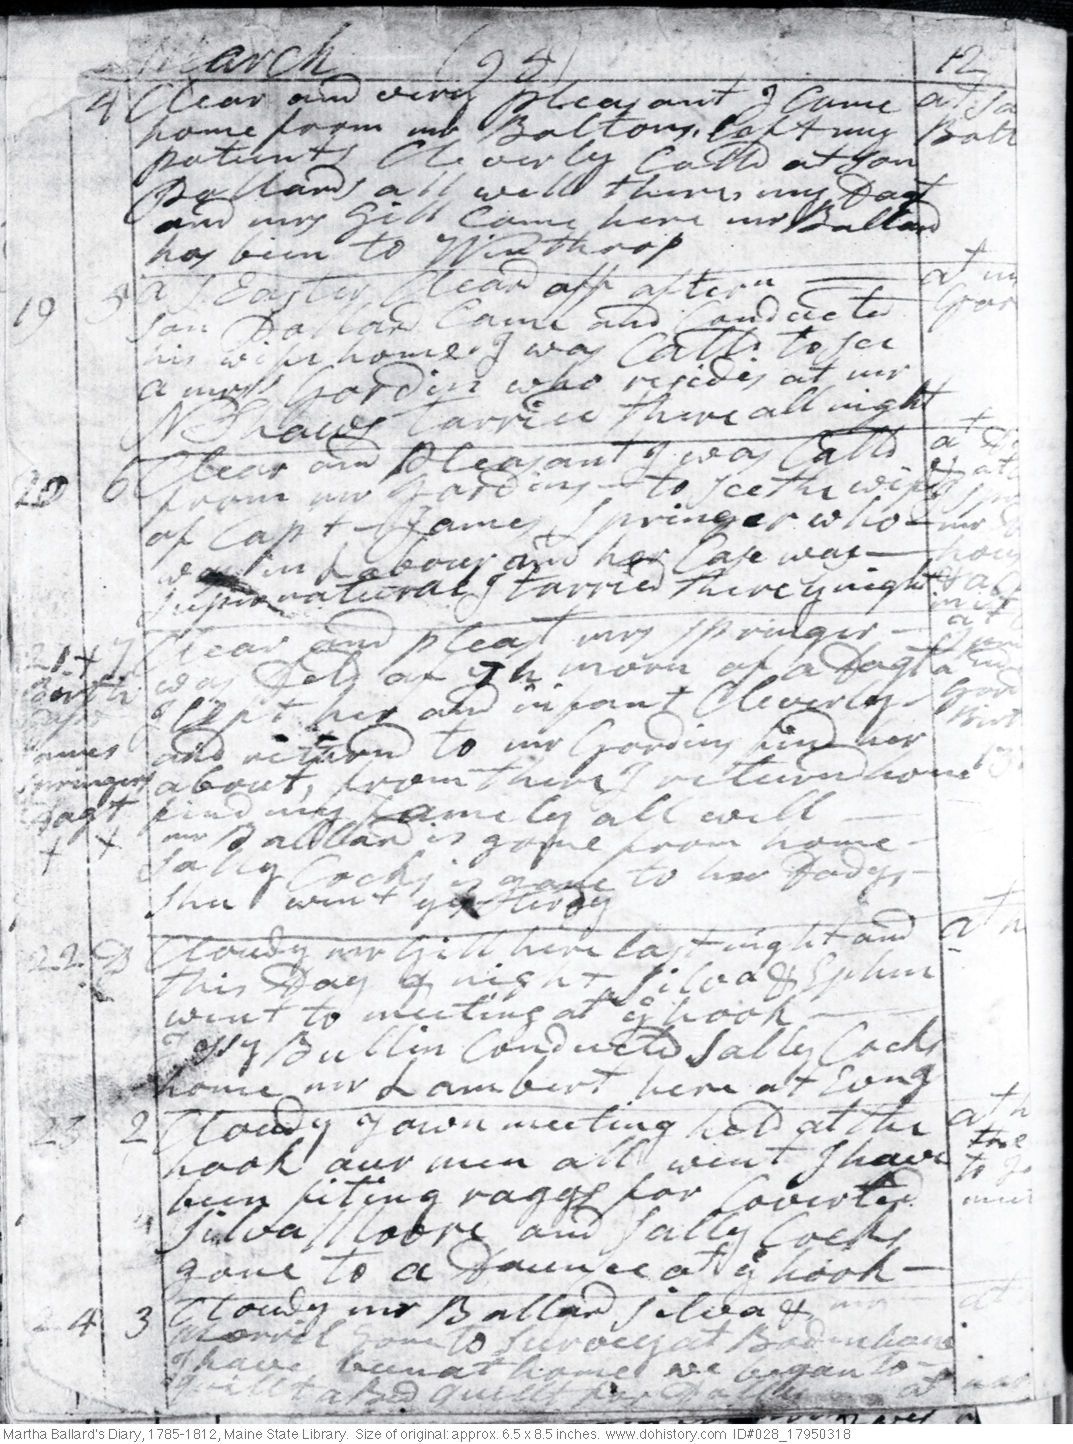 March (95) 12
4 Clear and very pleasant I Came at
home from mr Boltons. left my Bolt
patients Cleverly Calld at son
Pollards all well there, my Dagt
and mrs Gill Came here mr Ballard
has been to Winthrop
19 5 a Easter Cleard off aftern at
son Pollard Came and Conducted
his wife home. I was Calld to see
a mrs Gordin who resides at mr
N Shaws tarried there all night
20 6 Clear and Pleasant I was Calld at
from mr Gordins to see the wife
of Capt James Springer who mr
was in Labour and her Case was
supernatural I tarried there ye night
21 + 7 Clear and pleast mrs springer at
Birth was Deld at 7h morn of a Dagt
I left her and infant Cleverly
James and return to mr Gordins find her
Springers about, from there I returnd home
Dagt find my family all well
+ + mr Ballard is gone from home
Sally Cocks is gone to her Dadys
shee went yesterdy
22 D Cloudy mr Gill here last night and at
this Day & night Silva & Ephm
went to meeting at ye hook
Jessy Bullin Conducted Sally Cocks
home mr Lambert here at Evng
23 2 Cloudy Town meeting held at the at h
hook our men all went I have
been fiting raggs for Coverled
Silva Moore and Sally Cocks
gone to a Daunce at ye hook
24 3 Cloudy mr Ballard Silva & mr at
Morril gone to survey at Bodenham
I have been at home we began to
quilt a Bed quilt
Martha Ballard's Diary, 1785-1812, Maine State Library. Size of original: approx. 6.5 x 8.5 inches. www.dohistory.com ID#028_17950318